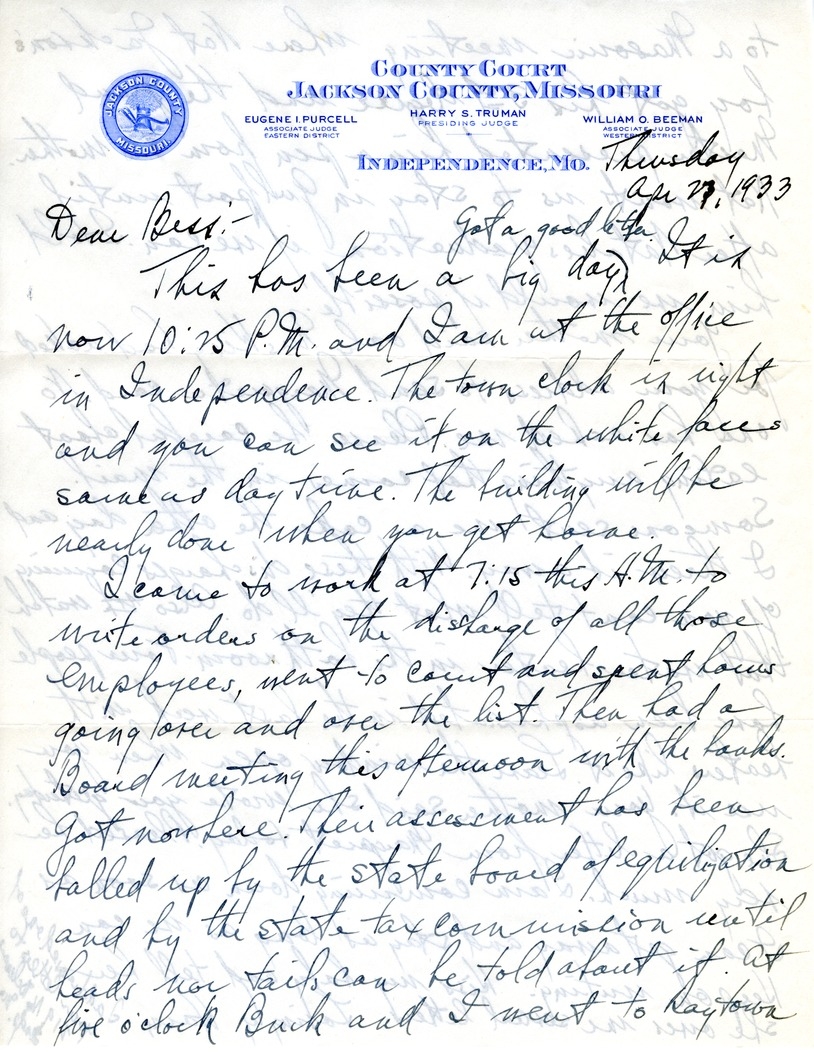 COUNTY COURT
JACKSON COUNTY, MISSOURI
JACKSON COUNTY
MISSOURI
EUGENE I. PURCELL
ASSOCIATE JUDGE
EASTERN DISTRICT
HARRY S. TRUMAN
PRESIDING JUDGE
WILLIAM O. BEEMAN
ASSOCIATE JUDGE
WESTERN DISTRICT
INDEPENDENCE, MO. Thursday
Apr 27, 1933
Dear Bess:-
Got a good letter.
This has been a big day. It is
now 10:25 P.M. and I am at the office
in Independence. The town clock is right
and you can see it on the white faces
same as day time. The building will be
nearly done when you get home.
I came to work at 7:15 this A.M. to
write orders on the discharge of all those
employees, went to court and spent hours
going over and over the list. Then had a
Board meeting this afternoon with the banks.
Got nowhere. Their assessment has been
balled up by the state board of equilization
and by the state tax commission until
heads nor tails can be told about it. At
five o'clock Buck and I went to Raytown